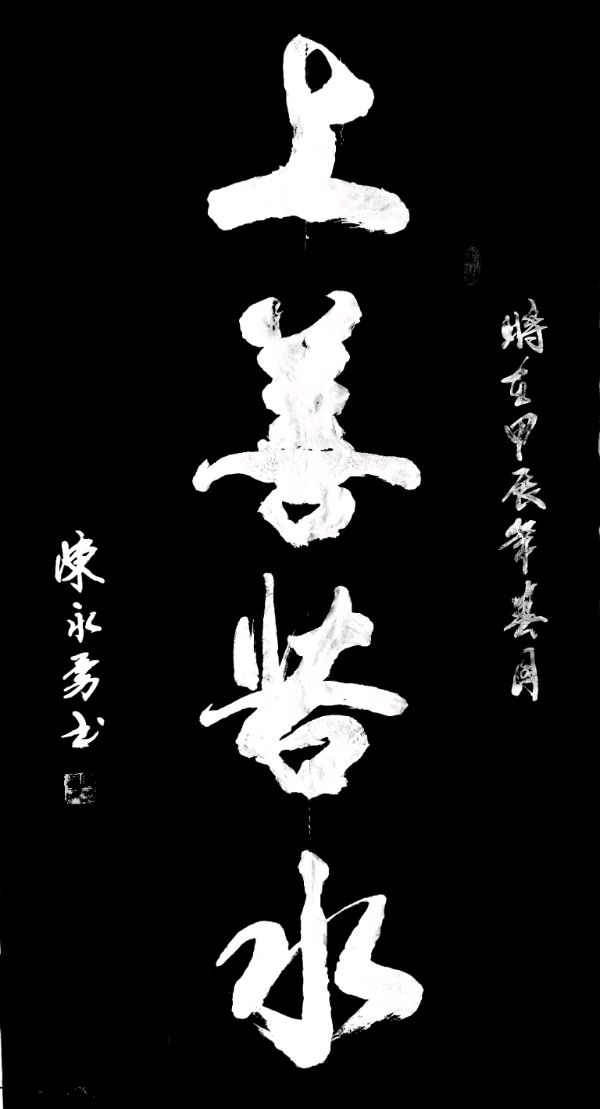 時在甲辰年春月
上善若水
陳永勇书